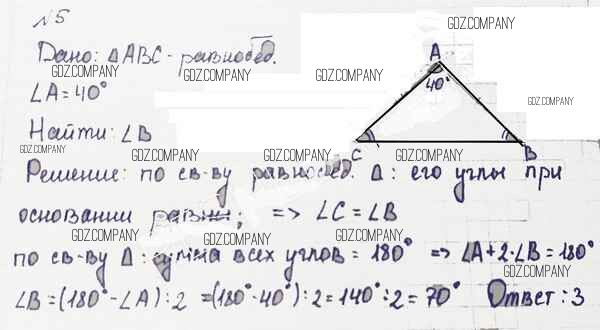 №5
GDZ.COMPANY
Дано: △ABC - равнобед.
GDZ.COMPANY GDZ.COMPANY GDZ.COMPANY
A
∠A = 40°
40°
GDZ.COMPANY
Найти: ∠B
GDZ.COMPANY
C
B
GDZ.COMPANY GDZ.COMPANY GDZ.COMPANY
Решение: по св-ву равнобед. △: его углы при
основании равны; => ∠C = ∠B
GDZ.COMPANY GDZ.COMPANY GDZ.COMPANY
по св-ву △: сумма всех углов = 180° => ∠A + 2·∠B = 180°
GDZ.COMPANY GDZ.COMPANY GDZ.COMPANY
∠B = (180° - ∠A) : 2 = (180° - 40°) : 2 = 140° : 2 = 70° Ответ: 3